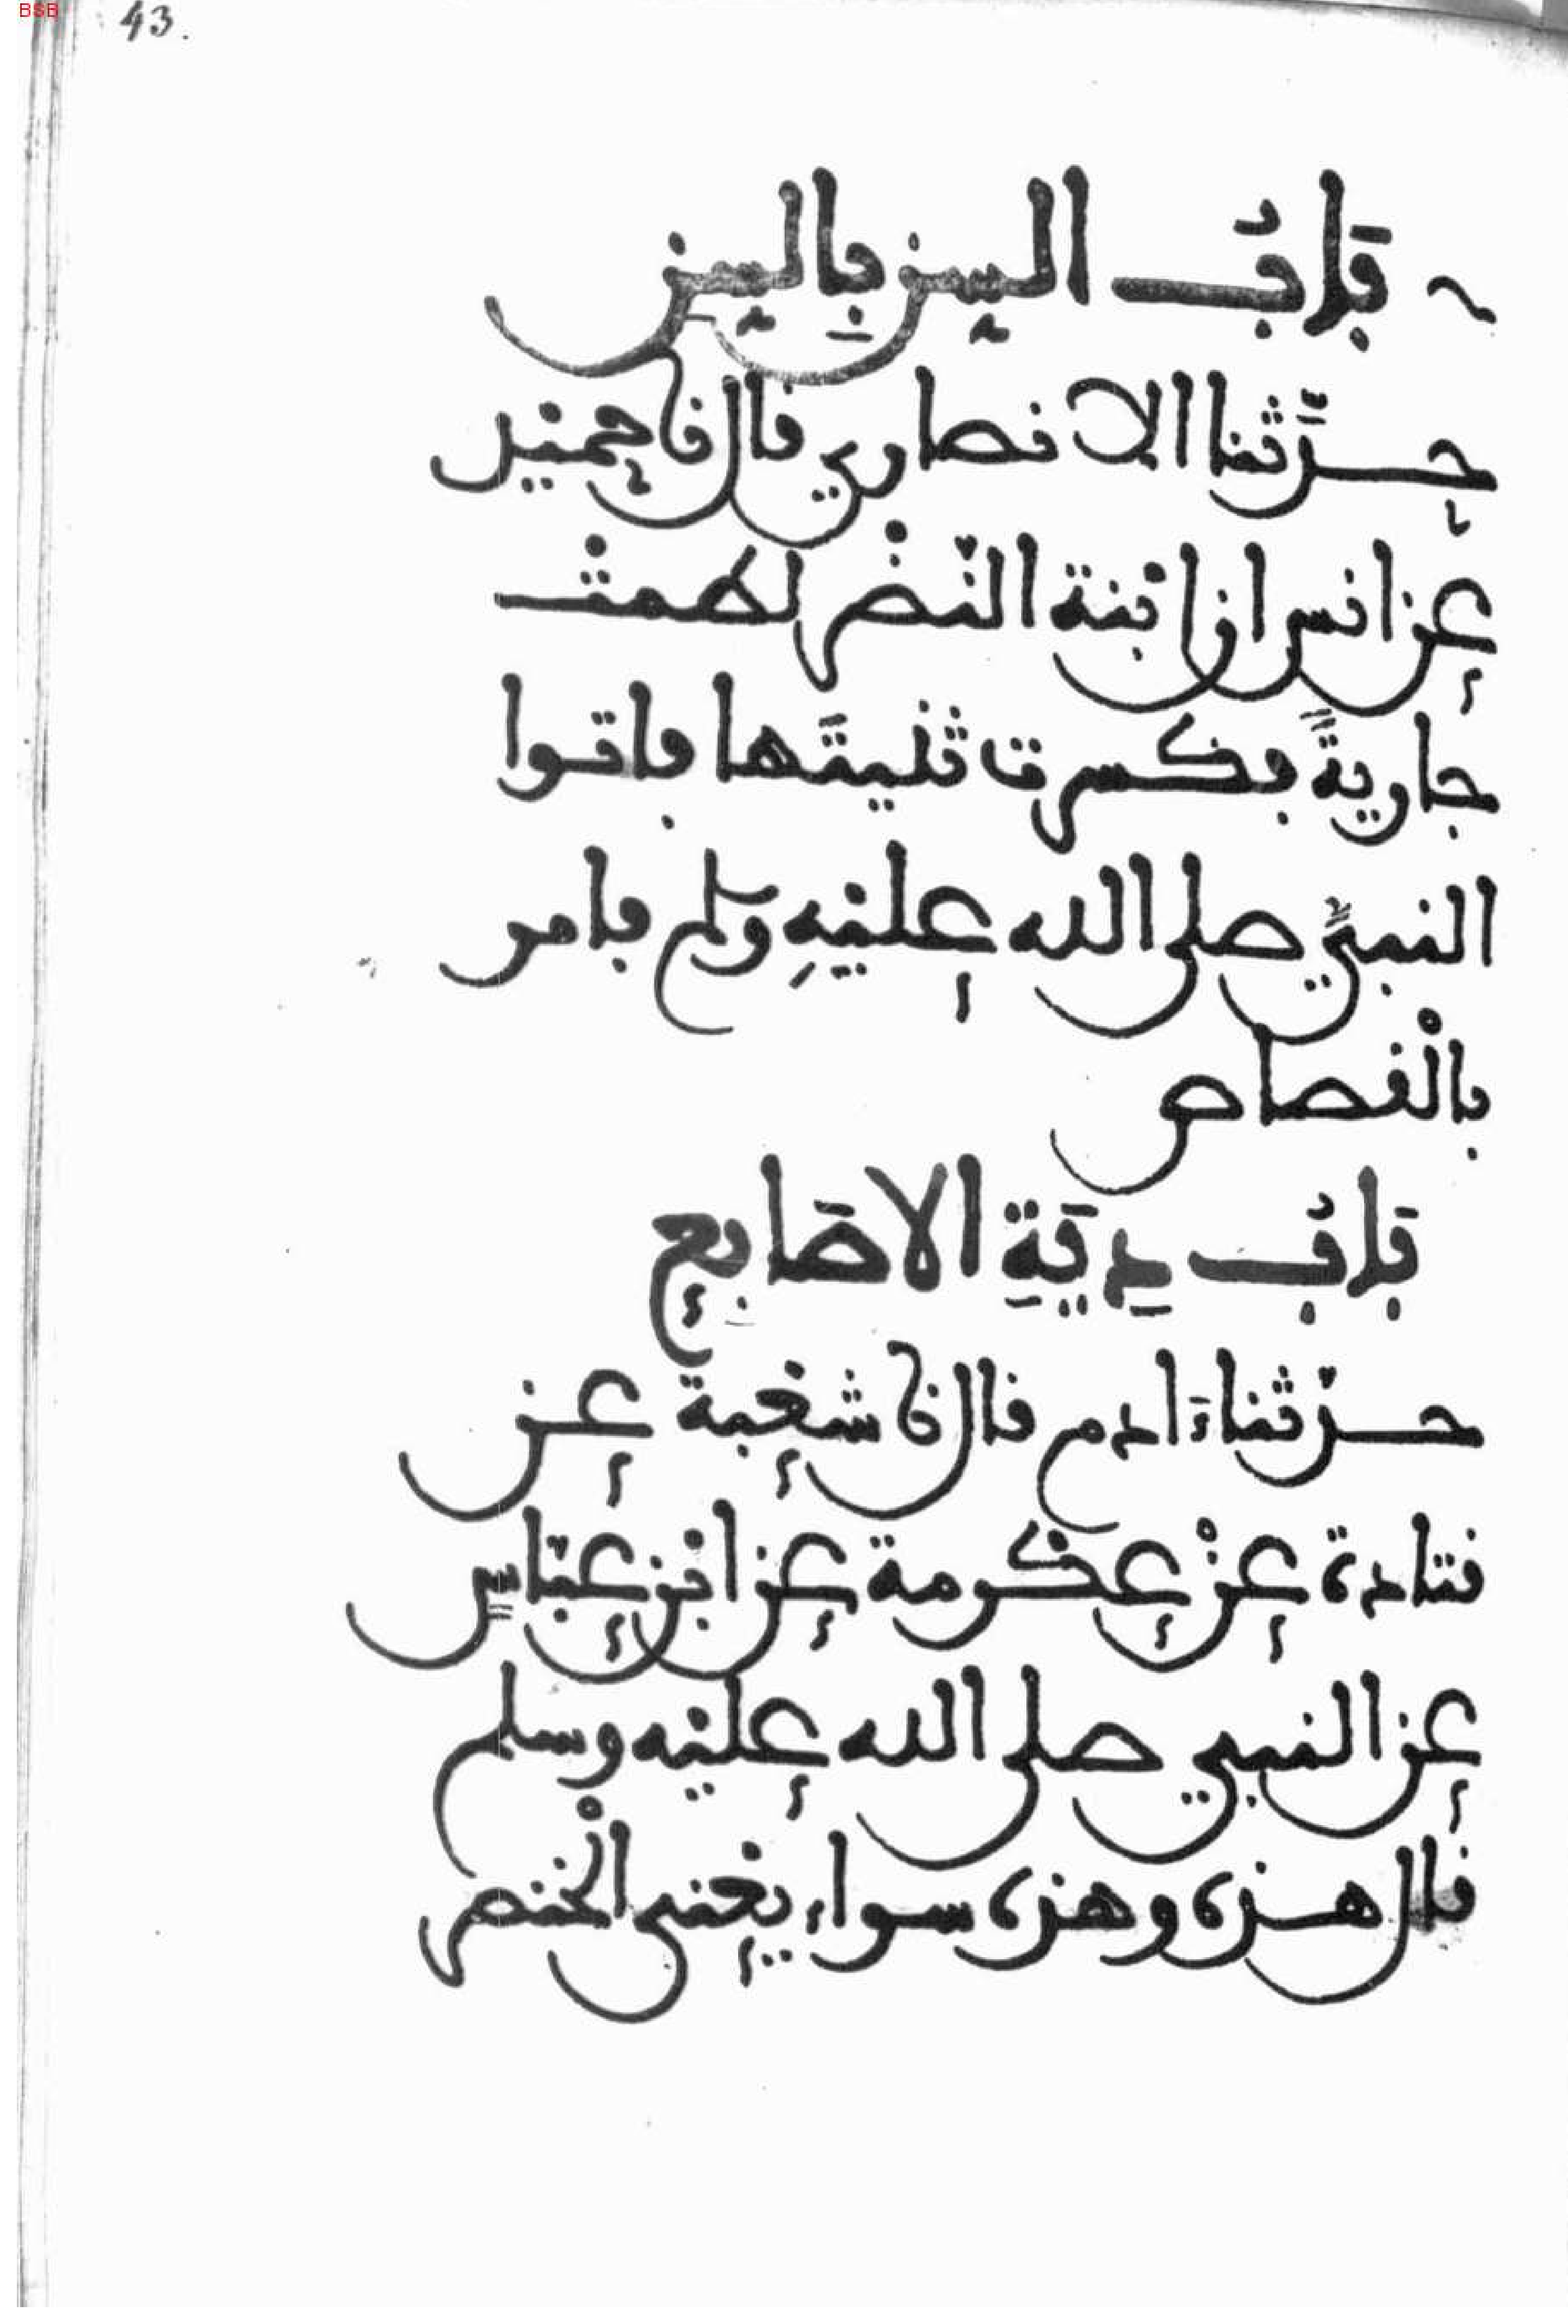 BSB
43.
بَابُ السِّنِّ بِالسِّنِّ
حدَّثنا الانصاري قال نا حميد
عن انس ان ابْنة النّضْر لطمتْ
جاريةً فكسرت ثنيتَها فاتوا
النبيَّ صلى الله عليهِ وسلم فامر
بالْقصاص
بَابُ دِيَةِ الاصَابعِ
حدّثنا ءادم قال نا شعْبة عن
قتادة عنْ عكرمة عن ابْن عبّاسٍ
عن النبي صلى الله عليه وسلم
قال هذه وهذه سواء يعْني الْخنصر